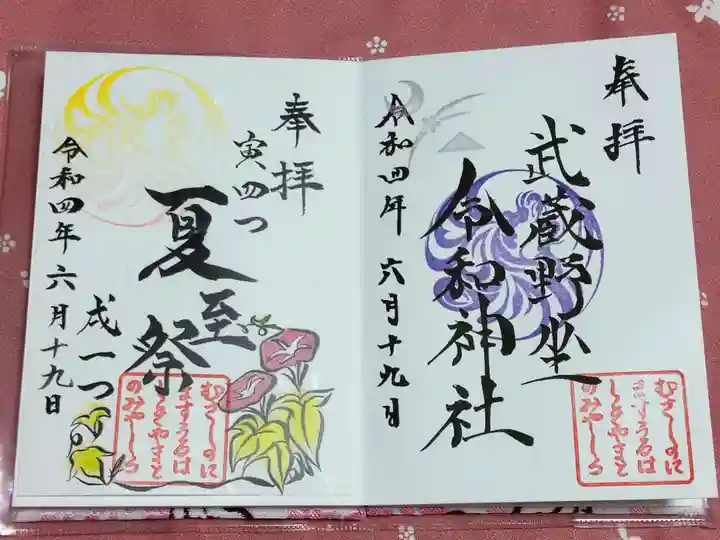 奉拝
武蔵野坐
令和神社
令和四年 六月十九日
むさしのに
ますうるは
しきやまと
のみやしろ
奉拝
寅四つ
夏至祭
戌一つ
令和四年 六月十九日
むさしのに
ますうるは
しきやまと
のみやしろ